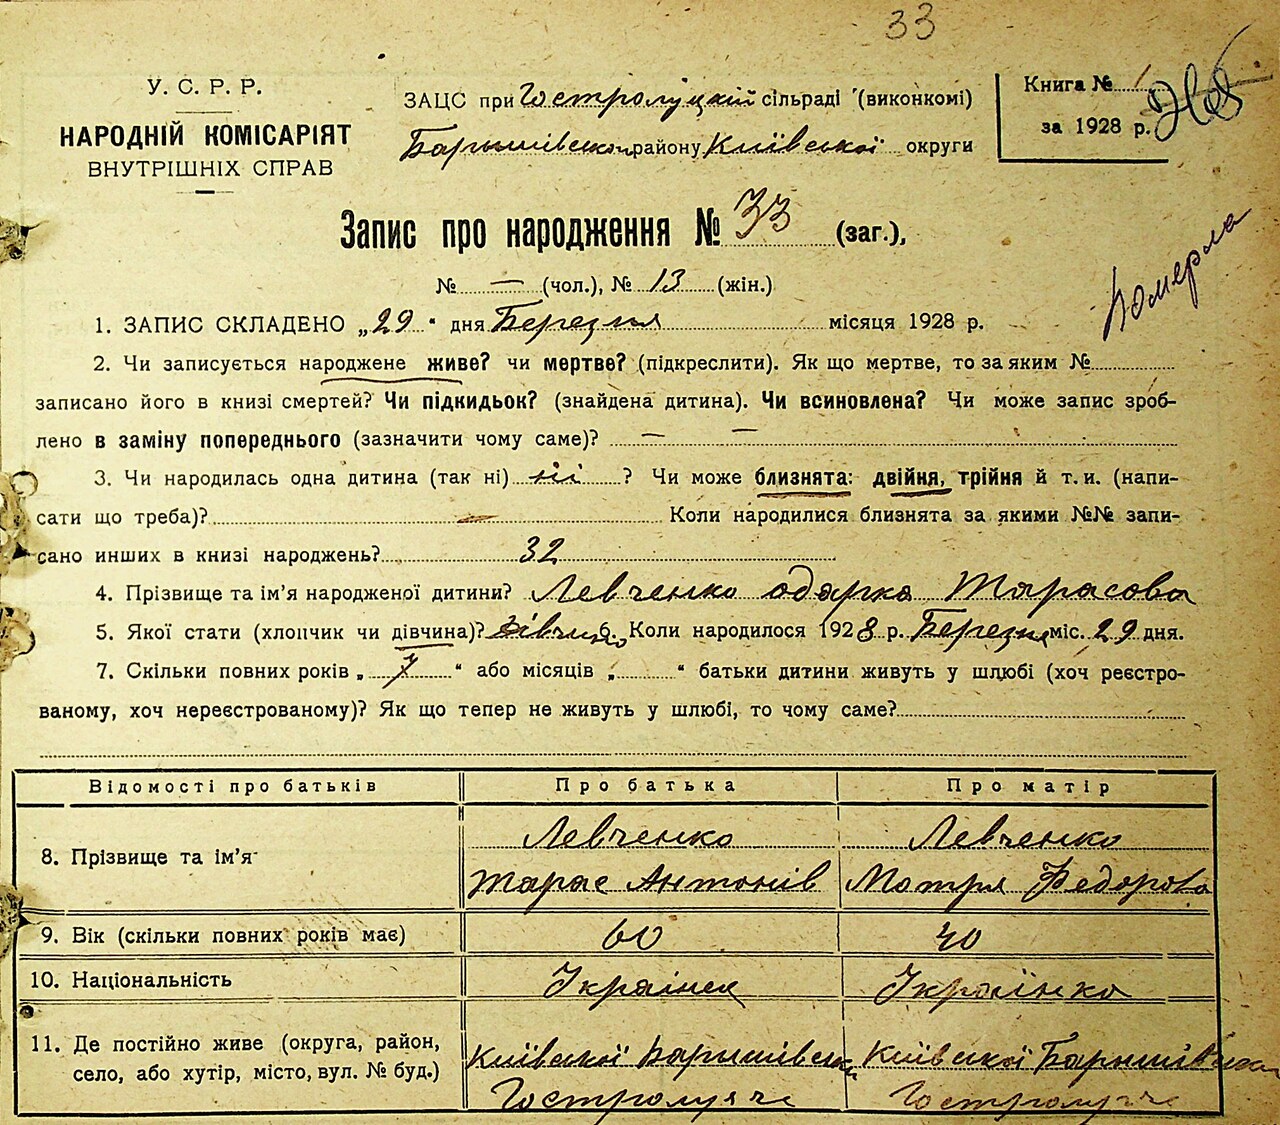 33
У. С. Р. Р.
НАРОДНІЙ КОМІСАРІЯТ
ВНУТРІШНІХ СПРАВ
ЗАЦС при Гостролуцкій сільраді (виконкомі)
Баришівськ району Київської округи
Книга № 1
за 1928 р.
Запис про народження № 33 (заг.),
№ — (чол.), № 13 (жін.)
Померла
1. ЗАПИС СКЛАДЕНО „29“ дня Березня місяця 1928 р.
2. Чи записується народжене живе? чи мертве? (підкреслити). Як що мертве, то за яким №
записано його в книзі смертей? Чи підкидьок? (знайдена дитина). Чи всиновлена? Чи може запис зроб-
лено в заміну попереднього (зазначити чому саме)? — —
3. Чи народилась одна дитина (так ні) ні ? Чи може близнята: двійня, трійня й т. и. (напи-
сати що треба)? — Коли народилися близнята за якими №№ запи-
сано инших в книзі народжень? 32
4. Прізвище та ім’я народженої дитини? Левченко одарка Тарасова
5. Якої стати (хлопчик чи дівчина)? дівчина 6. Коли народилося 1928 р. Березня міс. 29 дня.
7. Скільки повних років „ 7 “ або місяців „ “ батьки дитини живуть у шлюбі (хоч реєстро-
ваному, хоч нереєстрованому)? Як що тепер не живуть у шлюбі, то чому саме?
Відомості про батьків Про батька Про матір
8. Прізвище та ім’я Левченко Тарас Антонів Левченко Мотря Федорова
9. Вік (скільки повних років має) 60 40
10. Національність Українец Українка
11. Де постійно живе (округа, район,
село, або хутір, місто, вул. № буд.)
Київської Баришівськ Київської Баришівська
Гостролучче Гостролучче